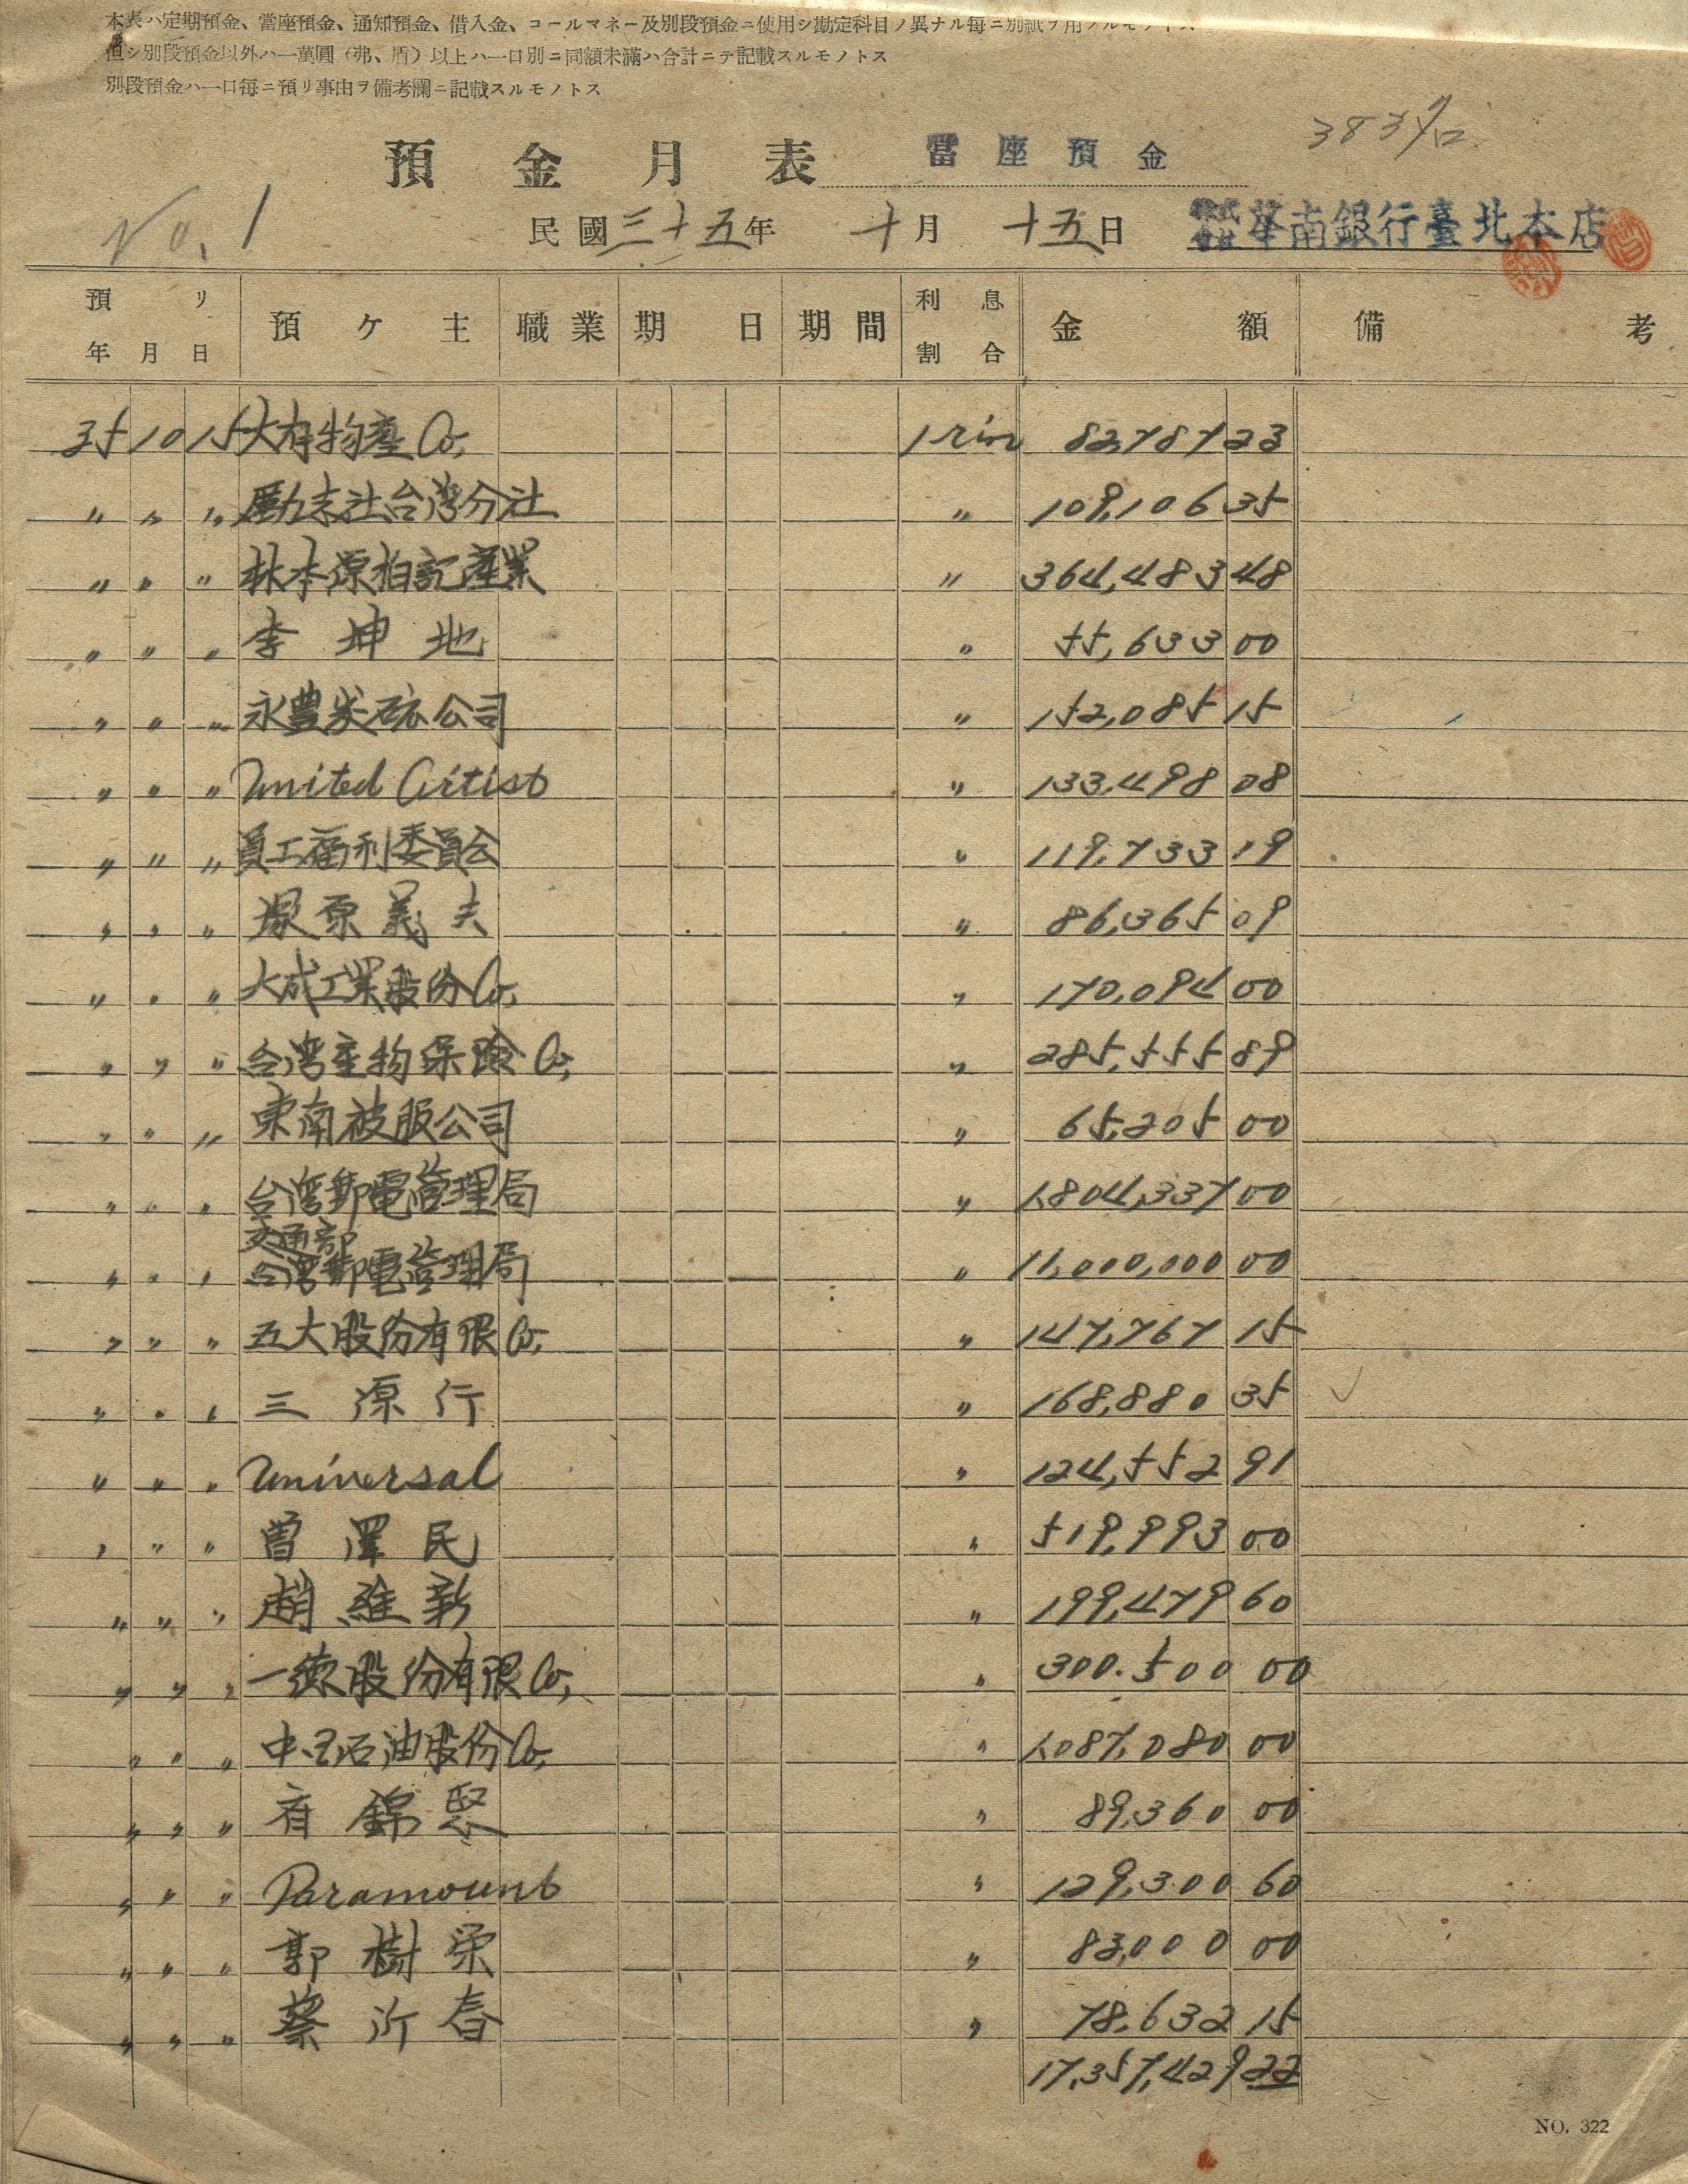 本表ハ定期預金、當座預金、通知預金、借入金、コールマネー及別段預金ニ使用シ勘定科目ノ異ナル每ニ別紙ヲ用フルモノトス
但シ別段預金以外ハ一萬圓（弗、盾）以上ハ一口別ニ同額未滿ハ合計ニテ記載スルモノトス
別段預金ハ一口每ニ預リ事由ヲ備考欄ニ記載スルモノトス
預金月表 當座預金
No. 1 民國三十五年 十月 十五日 株式會社華南銀行臺北本店
預リ年月日 預ケ主 職業 期日 期間 利息割合 金額 備考
35 10 15 大有物產Co, 1 rin 82,787 23
〃 〃 〃 勵志社台湾分社 〃 109,106 35
〃 〃 〃 林本源柏記產業 〃 364,483 48
〃 〃 〃 李坤地 〃 55,633 00
〃 〃 〃 永豊炭砿公司 〃 152,085 15
〃 〃 〃 United Artist 〃 133,498 08
〃 〃 〃 員工福利委員会 〃 119,733 19
〃 〃 〃 塚原義夫 〃 86,365 09
〃 〃 〃 大成工業股份Co, 〃 170,094 00
〃 〃 〃 台湾産物保險Co, 〃 285,555 89
〃 〃 〃 東南被服公司 〃 65,205 00
〃 〃 〃 台湾郵電管理局 〃 1,804,337 00
交通部
〃 〃 〃 台湾郵電管理局 〃 11,000,000 00
〃 〃 〃 五大股份有限Co, 〃 147,767 15
〃 〃 〃 三源行 〃 168,880 35
〃 〃 〃 Universal 〃 124,552 91
〃 〃 〃 曽澤民 〃 519,993 00
〃 〃 〃 趙維新 〃 199,479 60
〃 〃 〃 一德股份有限Co, 〃 300.500 00
〃 〃 〃 中国石油股份Co, 〃 1,087,080 00
〃 〃 〃 錦 〃 89,360 00
〃 〃 〃 Paramount 〃 129,300 60
〃 〃 〃 郭樹栄 〃 83,000 00
〃 〃 〃 蔡沂春 〃 78,632 15
17,357,429 22
NO. 322